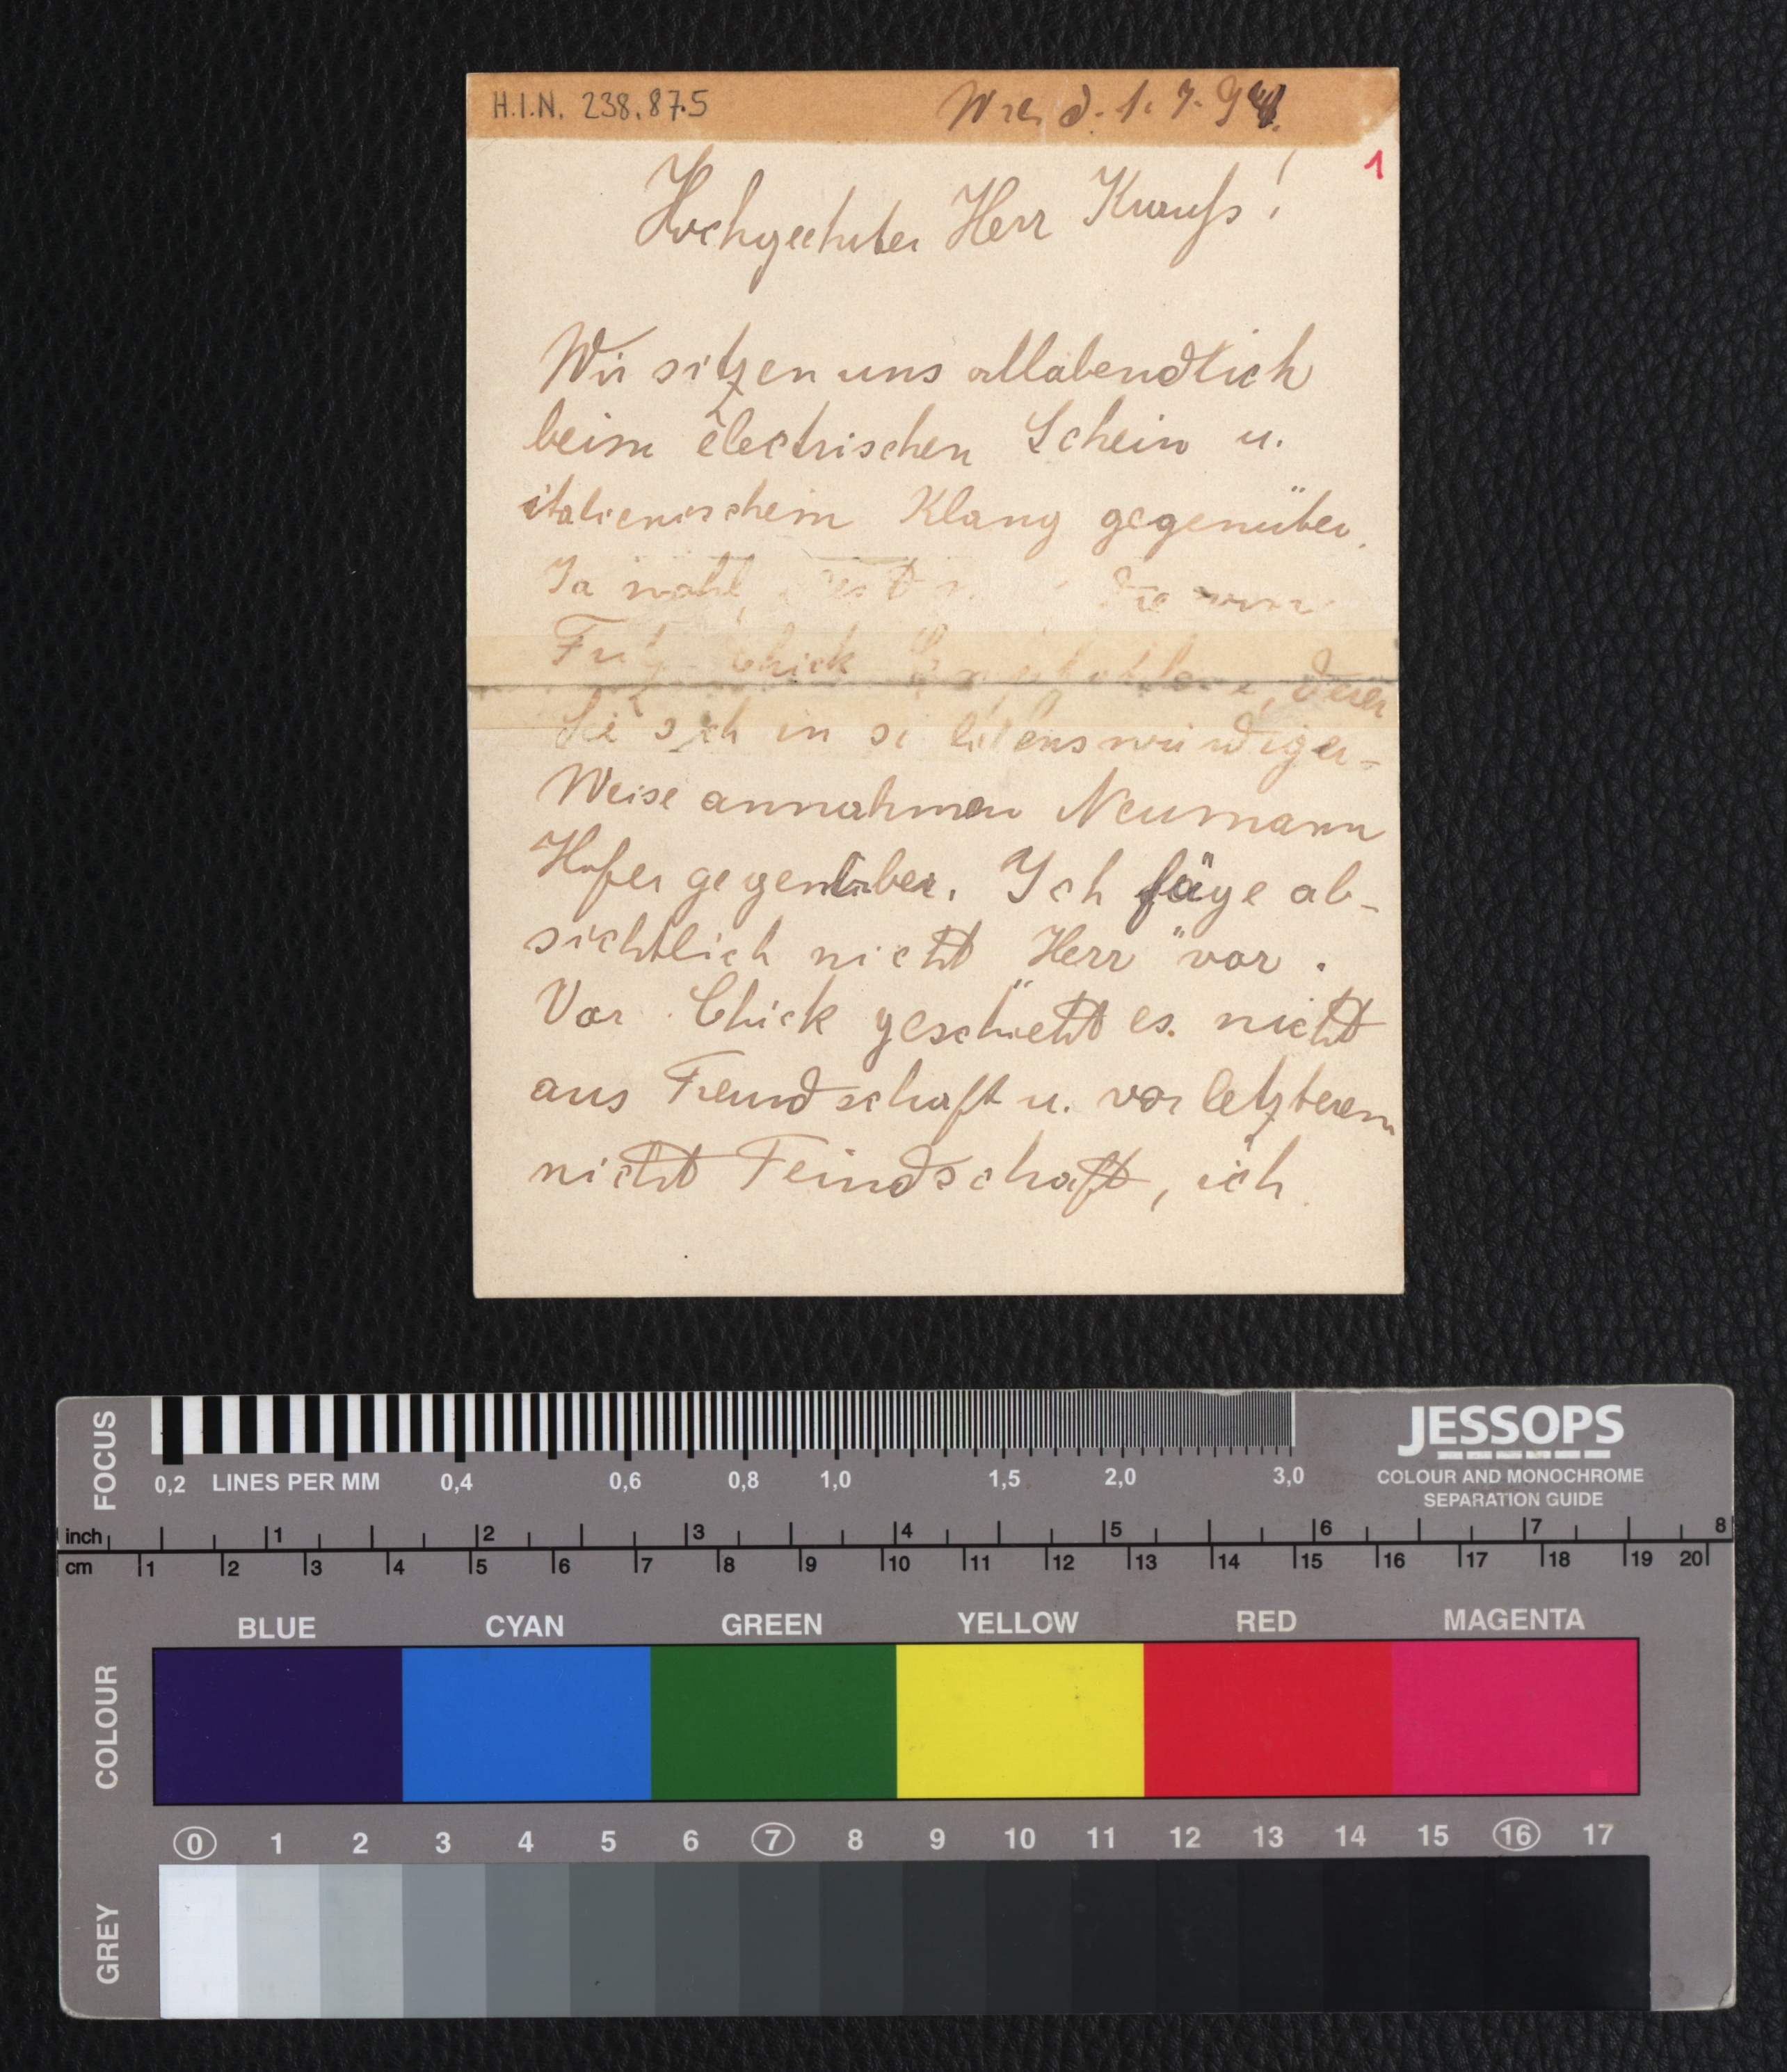 H.I.N. 238.875
d. 1. 9. 94.
1
Hochgeehrter Herr Krauss!
Wir sitzen uns allabendlich
beim electrischen Schein u.
italienischem Klang gegenüber.
Ja wohl, die von
Fritz Chick deren
Sie sich in so liebenswürdiger-
Weise annahmen Neumann
Hofer gegenüber. Ich füge ab-
sichtlich nicht "Herr" vor.
Vor Chick geschieht es nicht
aus Freundschaft u. vor letzterem
nicht Feindschaft, ich
FOCUS
0,2 LINES PER MM 0,4 0,6 0,8 1,0 1,5 2,0 3,0
JESSOPS
COLOUR AND MONOCHROME
SEPARATION GUIDE
inch 1 2 3 4 5 6 7 8
cm 1 2 3 4 5 6 7 8 9 10 11 12 13 14 15 16 17 18 19 20
COLOUR
BLUE CYAN GREEN YELLOW RED MAGENTA
0 1 2 3 4 5 6 7 8 9 10 11 12 13 14 15 16 17
GREY